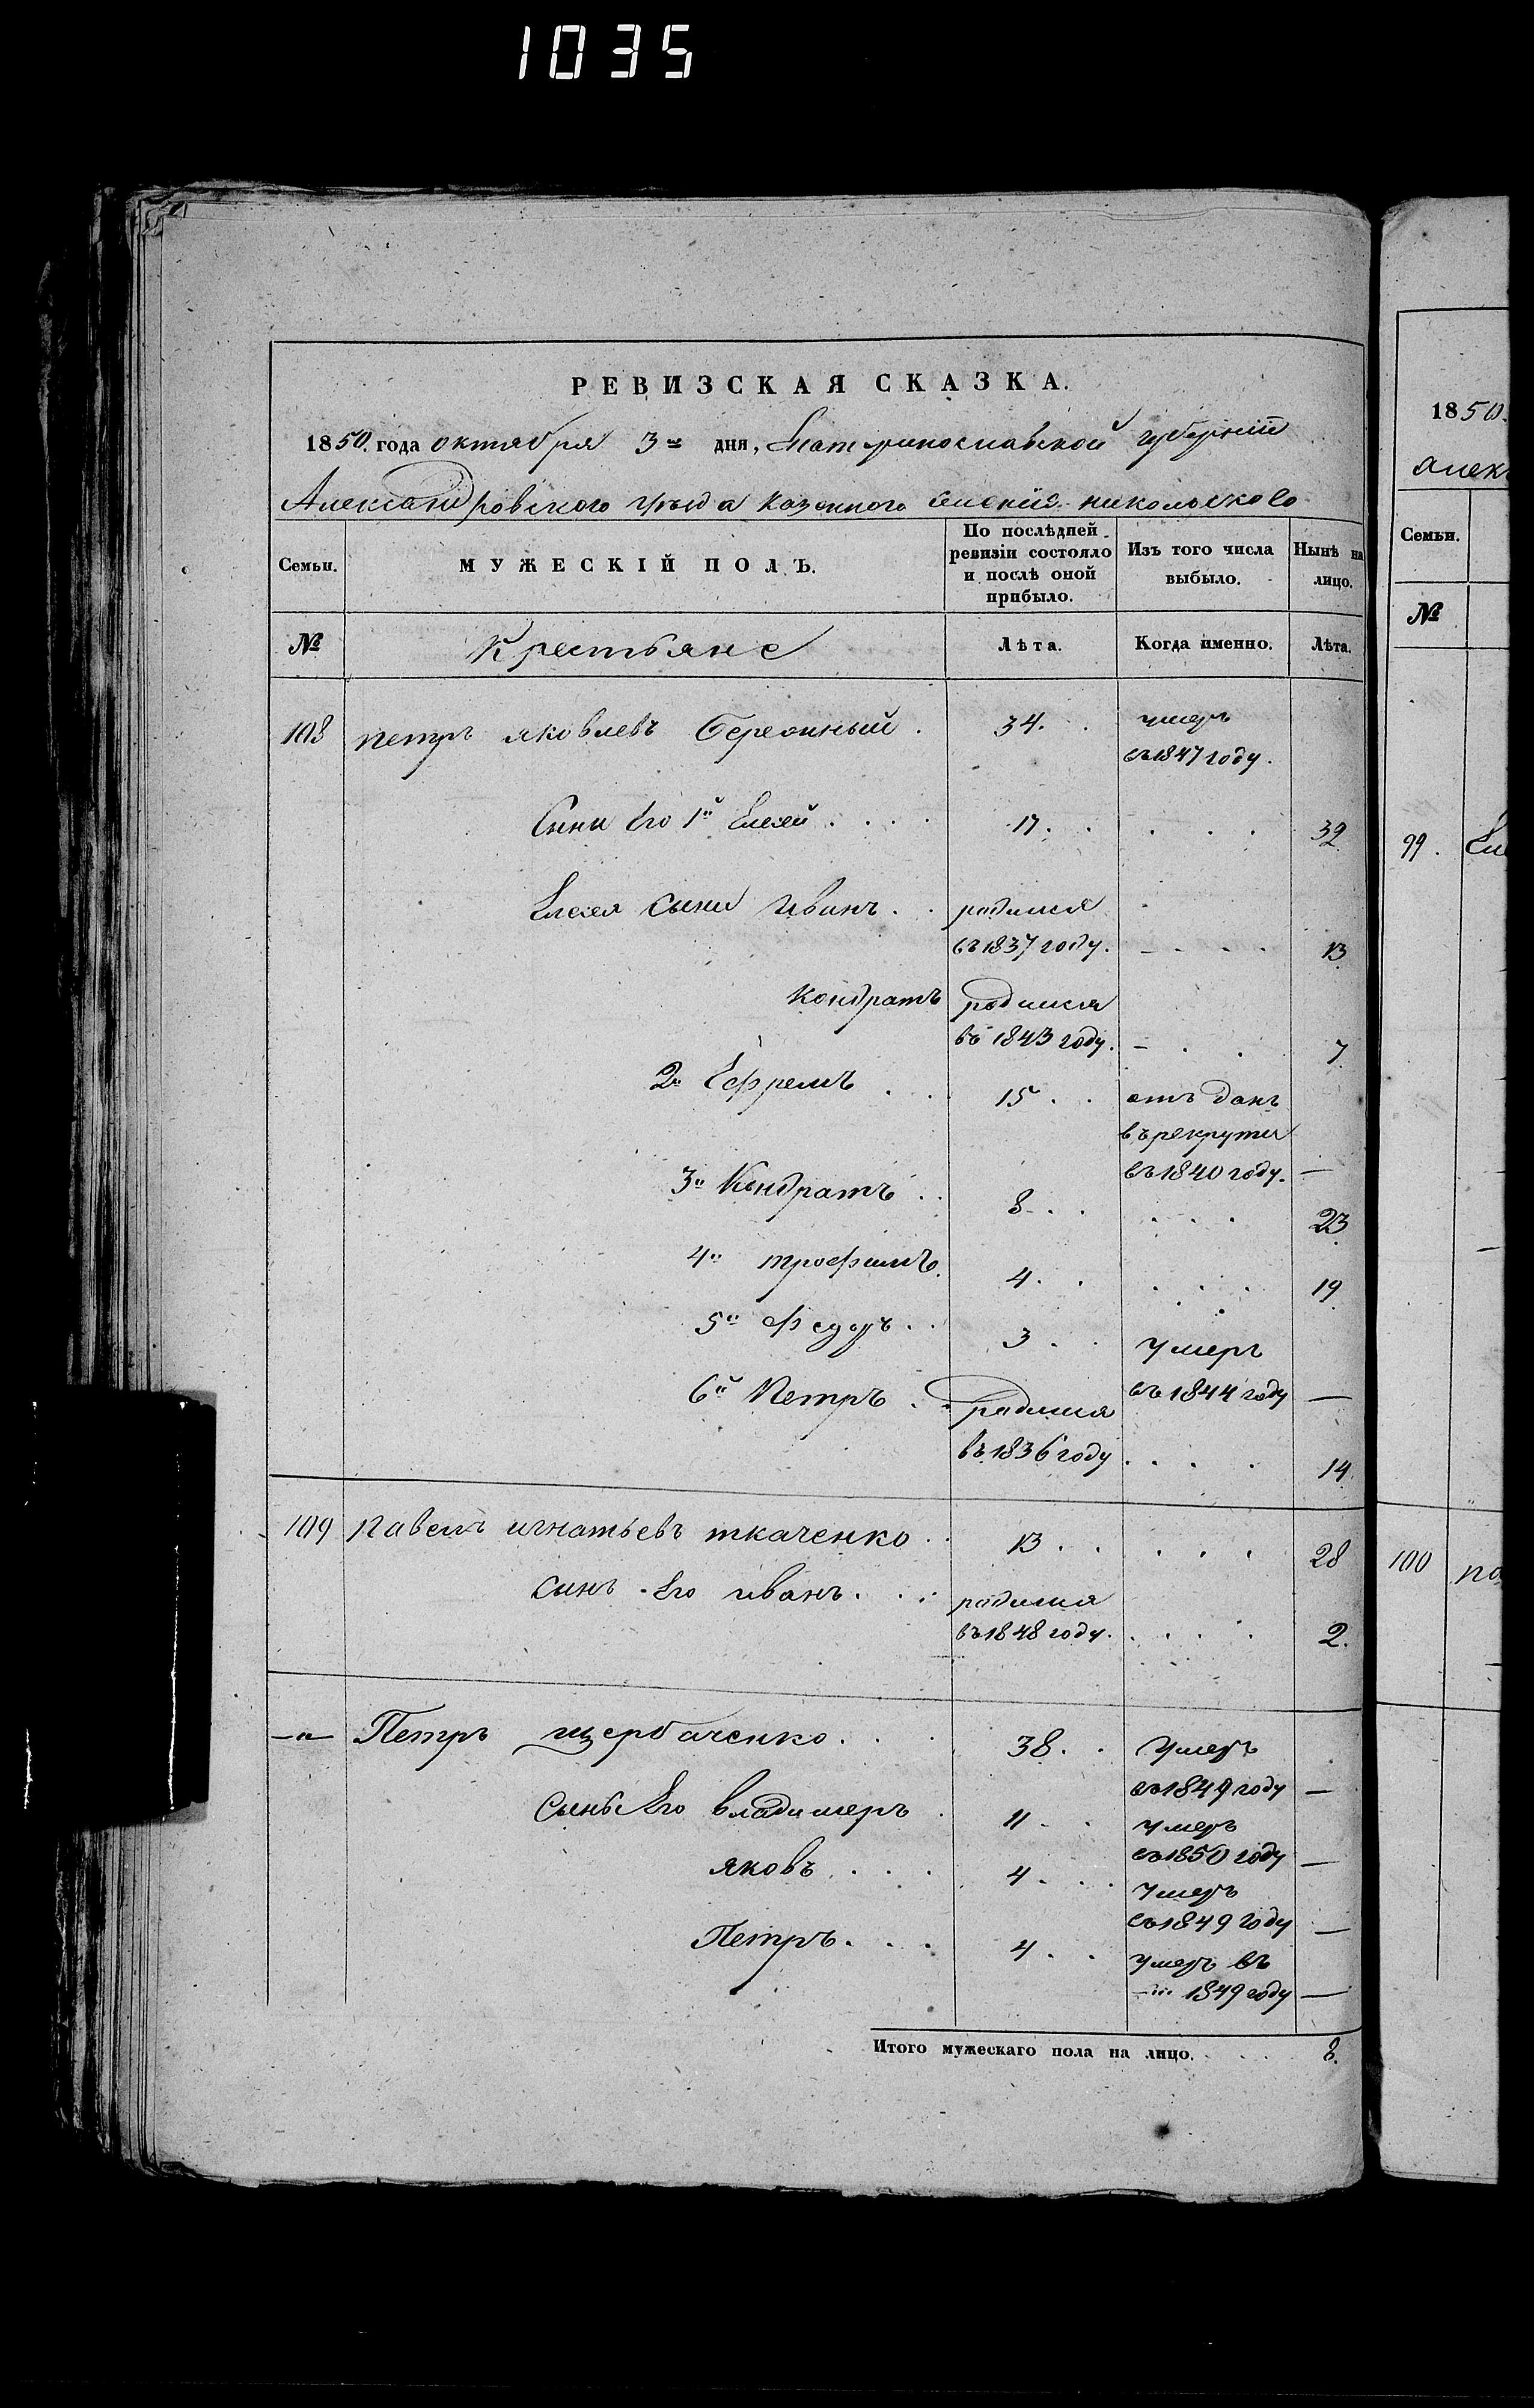 1035
РЕВИЗСКАЯ СКАЗКА.
1850. года октября 3го дня, Екатеринославской губернии
Александровского уезда казенного селения николаского
Семьи.
МУЖЕСКІЙ ПОЛЪ.
По послѣдней ревизіи состояло и послѣ оной прибыло.
Изъ того числа выбыло.
Нынѣ на лицо.
№ Крестьяне Лѣта. Когда именно. Лѣта.
108 петръ яковлевъ 34. умеръ
въ 1847 году.
Сини Его 1й Елисей 17. 32
Елисея сыни иванъ родился
въ 1837 году. 13
кондратъ родился
въ 1843 году. 7
2й Ефремъ 15 отъ данъ
въ рекруты
въ 1840 году. —
3й Кондратъ 8 23
4й трофимъ 4 19
5й 3 умеръ
въ 1844 году —
6й Петръ родился
въ 1836 году 14
109 павелъ игнатьевъ ткаченко 13 28
синъ Его иванъ родился
въ 1848 году. 2.
—"— Петръ щербаченко 38 умеръ
въ 1849 году —
сынъ Его владимеръ 11 умеръ
въ 1850 году —
яковъ 4 умеръ
въ 1849 году —
Петръ 4 умеръ въ
1849 году —
Итого мужескаго пола на лицо. 8.
1850.
алек
Семьи.
№
99.
100 па